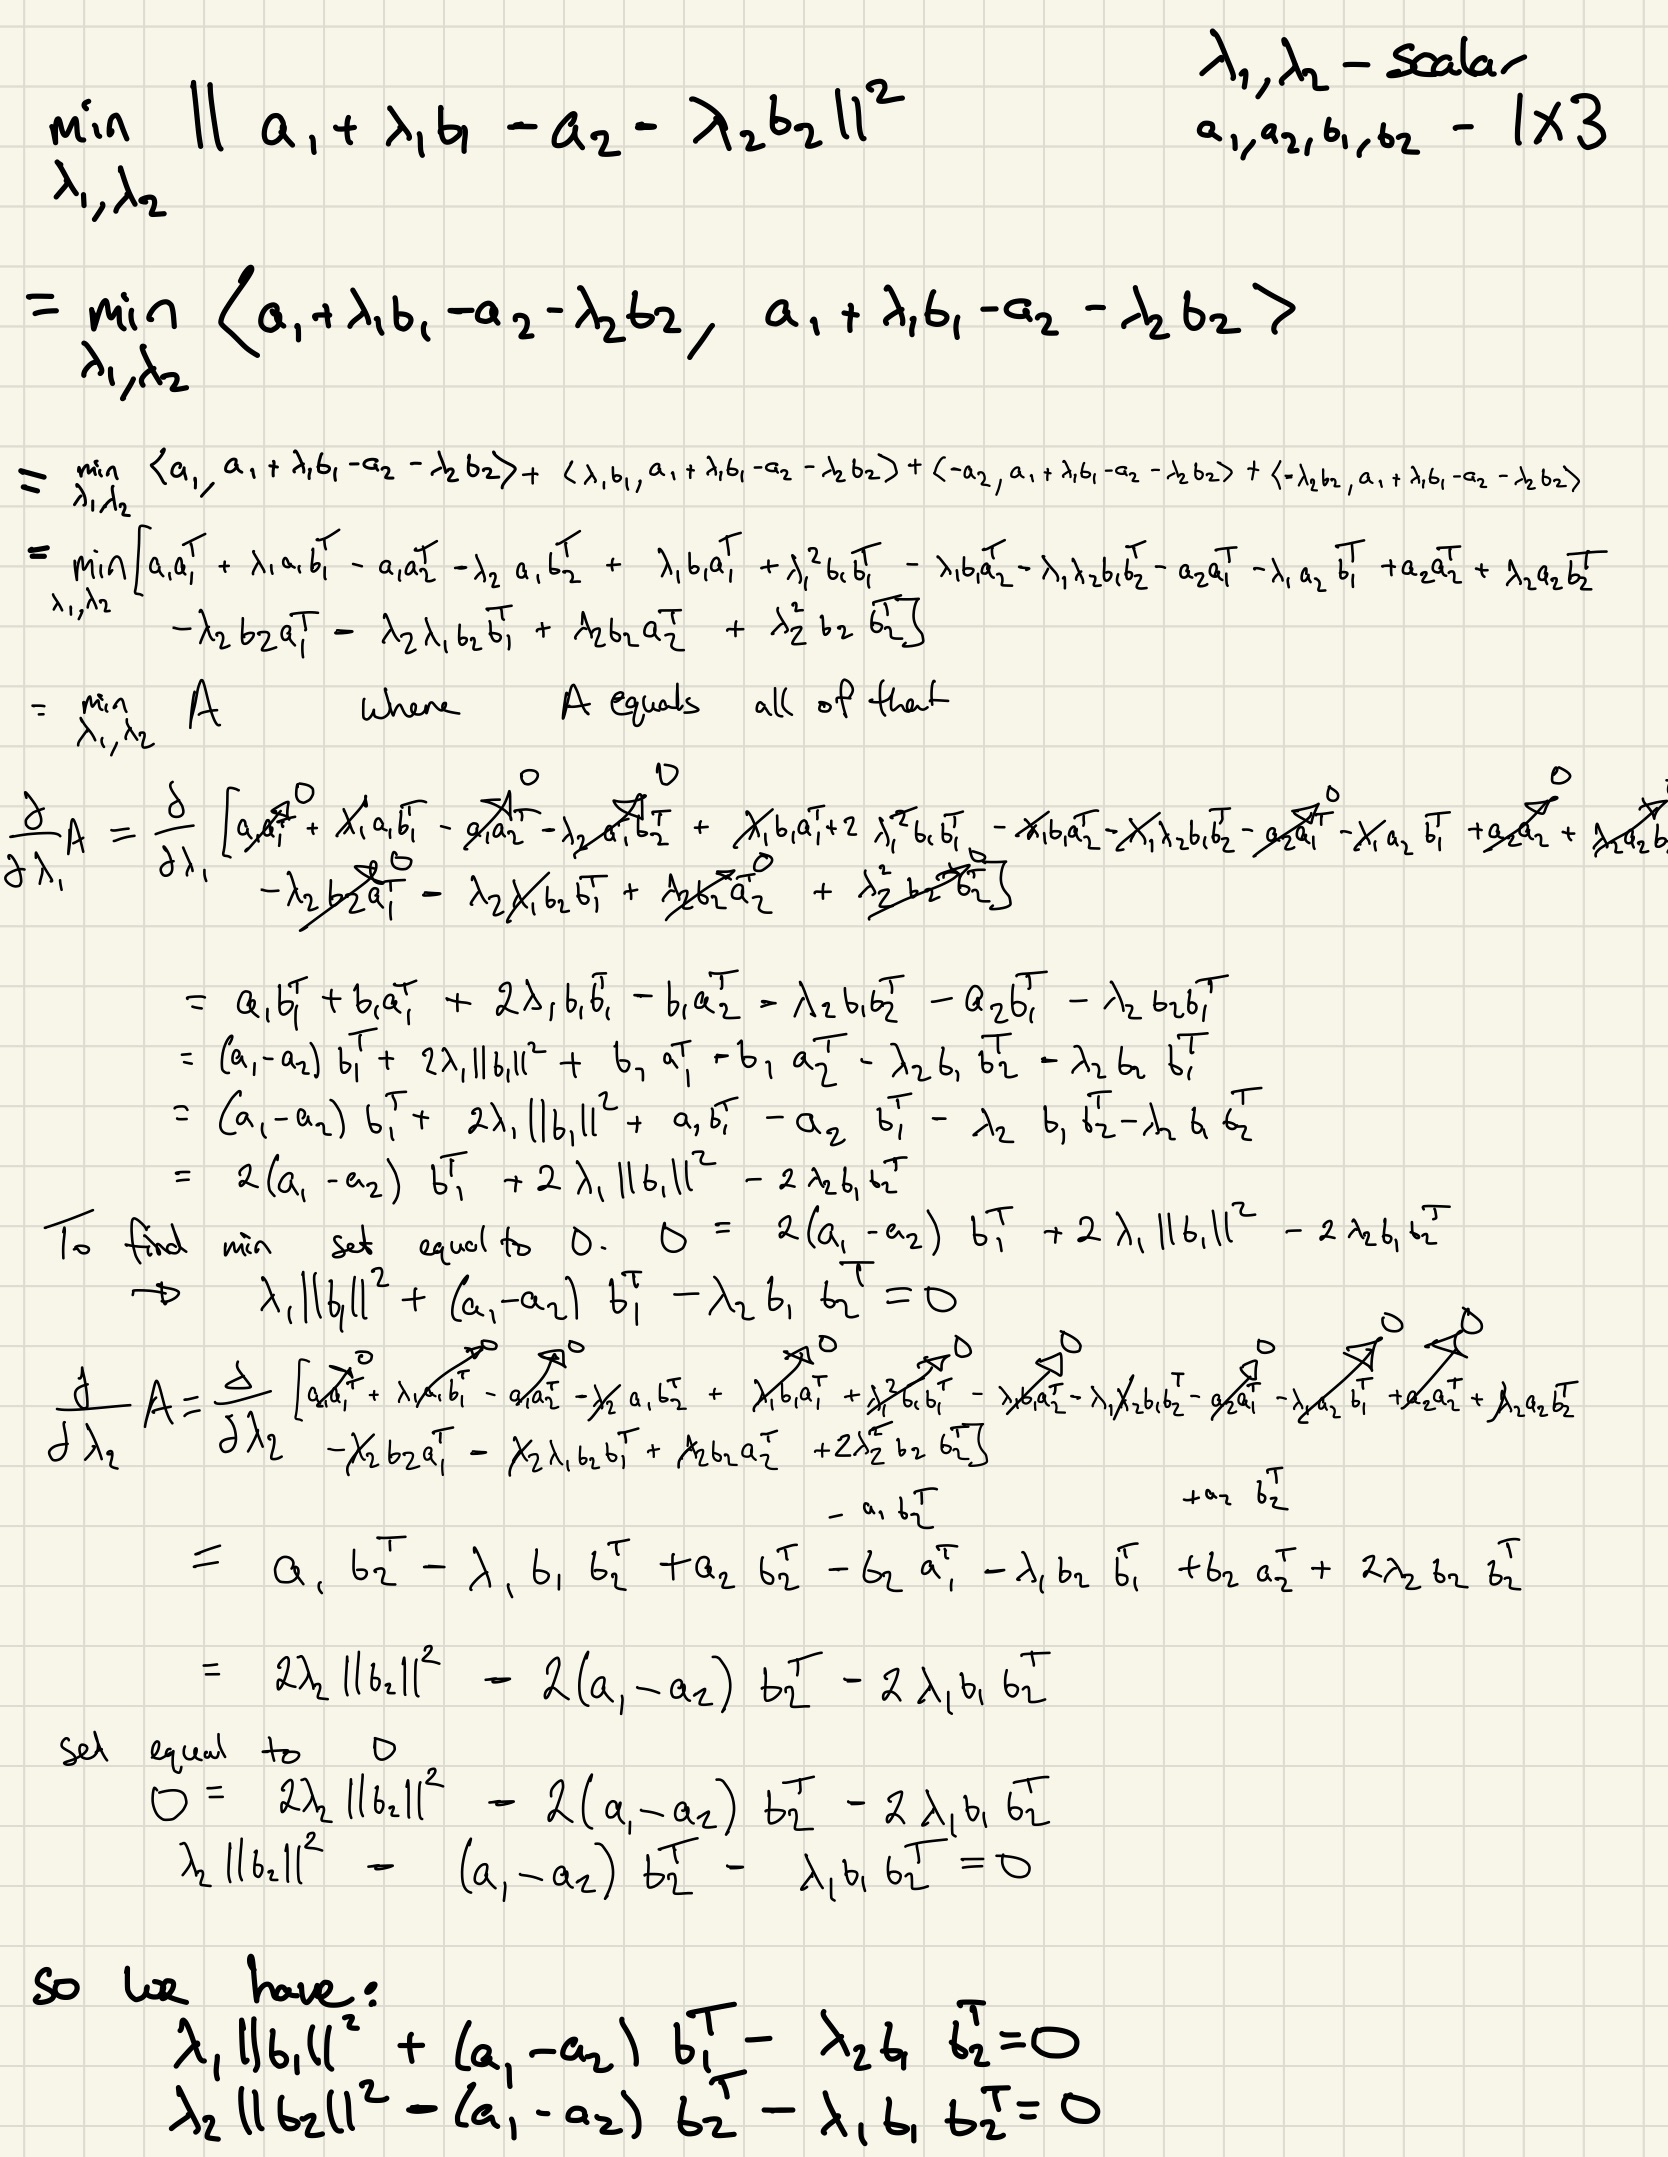 λ₁, λ₂ – scalar
min λ₁, λ₂ || a₁ + λ₁b₁ – a₂ – λ₂b₂ ||²
a₁, a₂, b₁, b₂ – 1×3
= min λ₁, λ₂ ⟨a₁ + λ₁b₁ – a₂ – λ₂b₂, a₁ + λ₁b₁ – a₂ – λ₂b₂⟩
= min λ₁, λ₂ ⟨a₁, a₁ + λ₁b₁ – a₂ – λ₂b₂⟩ + ⟨λ₁b₁, a₁ + λ₁b₁ – a₂ – λ₂b₂⟩ + ⟨–a₂, a₁ + λ₁b₁ – a₂ – λ₂b₂⟩ + ⟨–λ₂b₂, a₁ + λ₁b₁ – a₂ – λ₂b₂⟩
= min λ₁, λ₂ [a₁a₁ᵀ + λ₁a₁b₁ᵀ – a₁a₂ᵀ – λ₂a₁b₂ᵀ + λ₁b₁a₁ᵀ + λ₁²b₁b₁ᵀ – λ₁b₁a₂ᵀ – λ₁λ₂b₁b₂ᵀ – a₂a₁ᵀ – λ₁a₂b₁ᵀ + a₂a₂ᵀ + λ₂a₂b₂ᵀ
– λ₂b₂a₁ᵀ – λ₂λ₁b₂b₁ᵀ + λ₂b₂a₂ᵀ + λ₂²b₂b₂ᵀ]
= min λ₁, λ₂ A where A equals all of that
∂/∂λ₁ A = ∂/∂λ₁ [a₁a₁ᵀ 0 + λ₁a₁b₁ᵀ – a₁a₂ᵀ 0 – λ₂a₁b₂ᵀ 0 + λ₁b₁a₁ᵀ + 2 λ₁²b₁b₁ᵀ – λ₁b₁a₂ᵀ – λ₁λ₂b₁b₂ᵀ – a₂a₁ᵀ 0 – λ₁a₂b₁ᵀ + a₂a₂ 0 + λ₂a₂b₂
– λ₂b₂a₁ᵀ 0 – λ₂λ₁b₂b₁ᵀ + λ₂b₂a₂ᵀ 0 + λ₂²b₂b₂ᵀ 0]
= a₁b₁ᵀ + b₁a₁ᵀ + 2λ₁b₁b₁ᵀ – b₁a₂ᵀ – λ₂b₁b₂ᵀ – a₂b₁ᵀ – λ₂b₂b₁ᵀ
= (a₁–a₂) b₁ᵀ + 2λ₁||b₁||² + b₁a₁ᵀ – b₁a₂ᵀ – λ₂b₁b₂ᵀ – λ₂b₂b₁ᵀ
= (a₁–a₂) b₁ᵀ + 2λ₁||b₁||² + a₁b₁ᵀ – a₂b₁ᵀ – λ₂b₁b₂ᵀ – λ₂b₁b₂ᵀ
= 2(a₁–a₂) b₁ᵀ + 2λ₁||b₁||² – 2λ₂b₁b₂ᵀ
To find min set equal to 0. 0 = 2(a₁–a₂) b₁ᵀ + 2λ₁||b₁||² – 2λ₂b₁b₂ᵀ
⇒ λ₁||b₁||² + (a₁–a₂) b₁ᵀ – λ₂b₁b₂ᵀ = 0
∂/∂λ₂ A = ∂/∂λ₂ [a₁a₁ᵀ 0 + λ₁a₁b₁ᵀ 0 – a₁a₂ᵀ 0 – λ₂a₁b₂ᵀ + λ₁b₁a₁ᵀ 0 + λ₁²b₁b₁ᵀ 0 – λ₁b₁a₂ᵀ 0 – λ₁λ₂b₁b₂ᵀ – a₂a₁ᵀ 0 – λ₁a₂b₁ᵀ 0 + a₂a₂ᵀ 0 + λ₂a₂b₂ᵀ
– λ₂b₂a₁ᵀ – λ₂λ₁b₂b₁ᵀ + λ₂b₂a₂ᵀ + 2λ₂²b₂b₂ᵀ]
– a₁b₂ᵀ + a₂b₂ᵀ
= a₁b₂ᵀ – λ₁b₁b₂ᵀ + a₂b₂ᵀ – b₂a₁ᵀ – λ₁b₂b₁ᵀ + b₂a₂ᵀ + 2λ₂b₂b₂ᵀ
= 2λ₂||b₂||² – 2(a₁–a₂) b₂ᵀ – 2λ₁b₁b₂ᵀ
set equal to 0
0 = 2λ₂||b₂||² – 2(a₁–a₂) b₂ᵀ – 2λ₁b₁b₂ᵀ
λ₂||b₂||² – (a₁–a₂) b₂ᵀ – λ₁b₁b₂ᵀ = 0
so we have:
λ₁||b₁||² + (a₁–a₂) b₁ᵀ – λ₂b₁b₂ᵀ = 0
λ₂||b₂||² – (a₁–a₂) b₂ᵀ – λ₁b₁b₂ᵀ = 0